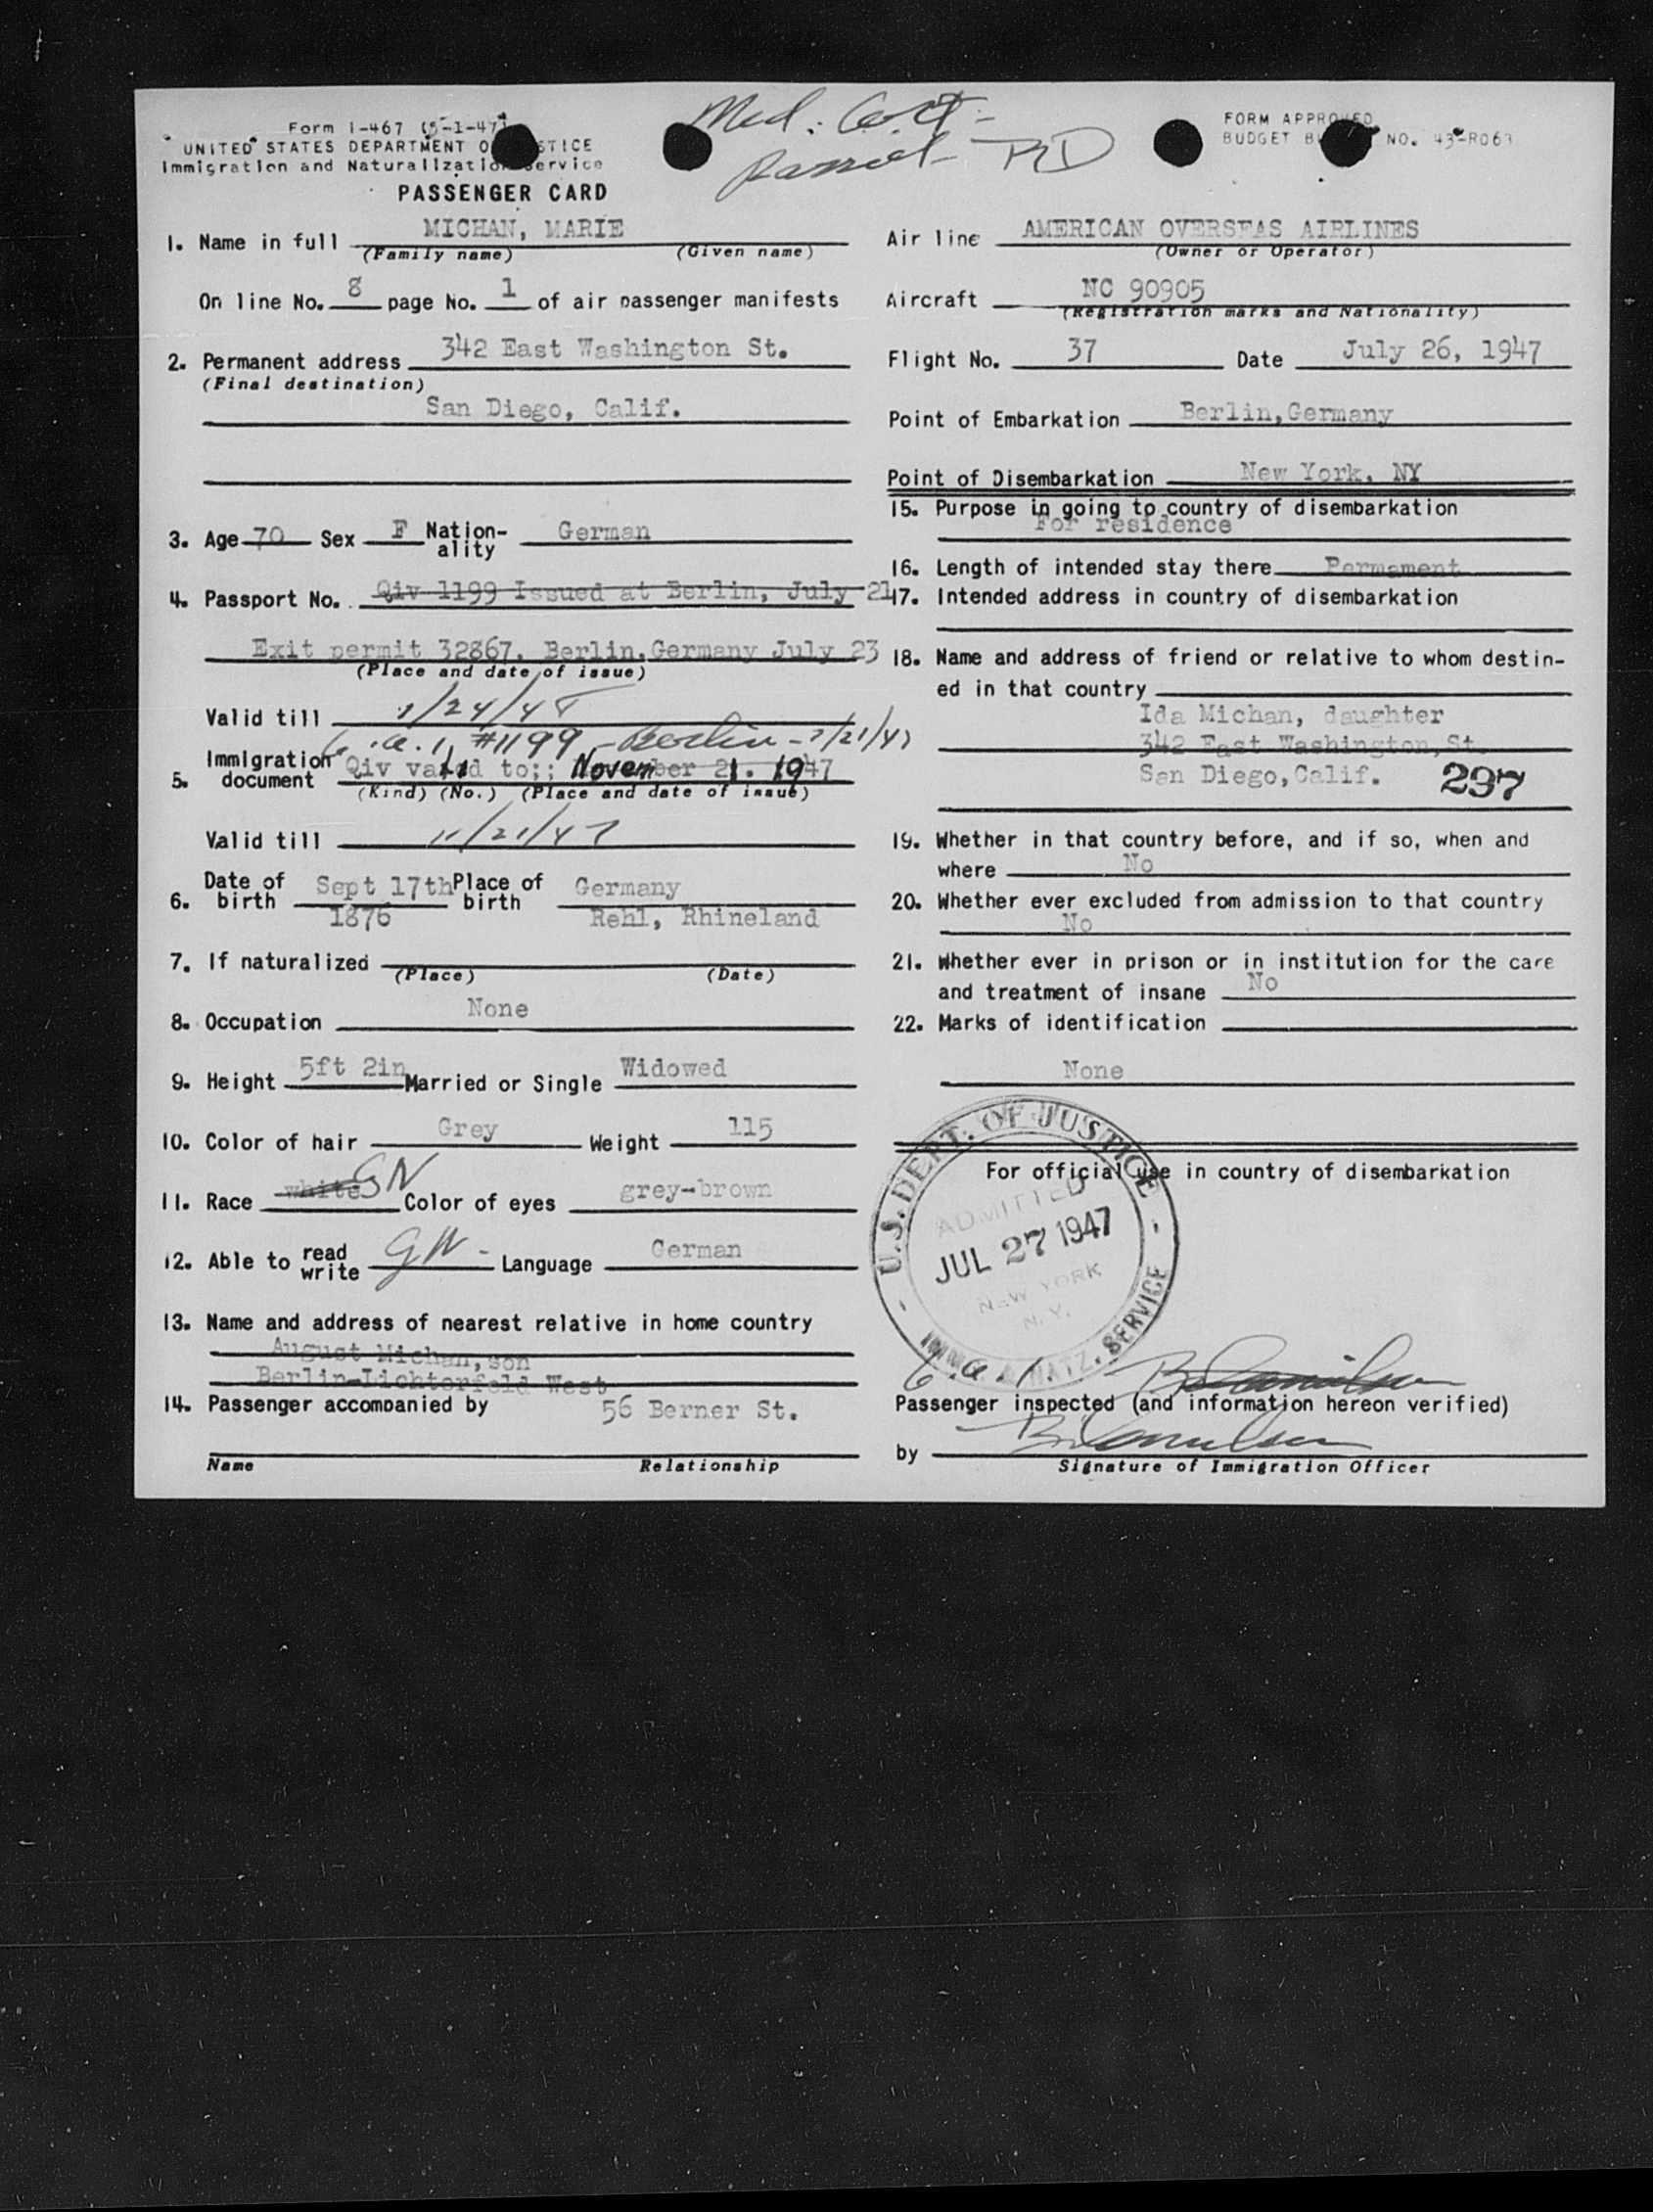 Med. Cert.
RD
Form I-467 (5-1-47)
UNITED STATES DEPARTMENT O STICE
Immigration and Naturalization Service
PASSENGER CARD
FORM APPROVED
BUDGET B NO. 43-R063
1. Name in full MICHAN, MARIE
(Family name) (Given name)
On line No. 8 page No. 1 of air passenger manifests
2. Permanent address 342 East Washington St.
(Final destination)
San Diego, Calif.
3. Age 70 Sex F Nation-ality German
4. Passport No. Qiv 1199 Issued at Berlin, July 21
Exit permit 32867, Berlin,Germany July 23
(Place and date of issue)
Valid till 1/24/48
6.a.1, #1199 - Berlin - 7/21/47
5. Immigration document Qiv valid to;; November 21. 1947
(Kind) (No.) (Place and date of issue)
Valid till 11/21/47
6. Date of birth Sept 17th Place of birth Germany
1876 Rehl, Rhineland
7. If naturalized
(Place) (Date)
8. Occupation None
9. Height 5ft 2in Married or Single Widowed
10. Color of hair Grey Weight 115
11. Race white GN Color of eyes grey-brown
12. Able to read write GN - Language German
13. Name and address of nearest relative in home country
August Michan, son
Berlin-Lichterfeld West
14. Passenger accompanied by 56 Berner St.
Name Relationship
Air line AMERICAN OVERSEAS AIRLINES
(Owner or Operator)
Aircraft NC 90905
(Registration marks and Nationality)
Flight No. 37 Date July 26, 1947
Point of Embarkation Berlin,Germany
Point of Disembarkation New York, NY
15. Purpose in going to country of disembarkation
For residence
16. Length of intended stay there Permament
17. Intended address in country of disembarkation
18. Name and address of friend or relative to whom destin-
ed in that country
Ida Michan, daughter
342 East Washington,St
San Diego,Calif. 297
19. Whether in that country before, and if so, when and
where No
20. Whether ever excluded from admission to that country
No
21. Whether ever in prison or in institution for the care
and treatment of insane No
22. Marks of identification
None
For official use in country of disembarkation
U.S. DEPT. OF JUSTICE
ADMITTED
JUL 27 1947
NEW YORK
N.Y.
IMMIG. & NATZ. SERVICE
6.a.1.
Passenger inspected (and information hereon verified)
by
Signature of Immigration Officer